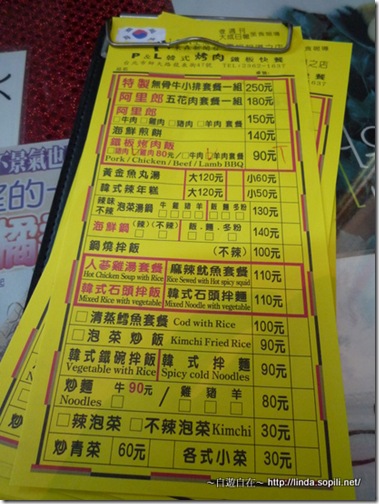 P & L 韓式 烤肉 鐵板快餐
特製 無骨牛小排套餐一組 250元
阿里郎 五花肉套餐 180元
阿里郎
□牛肉□雞肉□豬肉□羊肉 套餐 150元
海鮮煎餅 140元
鐵板烤肉飯
□豬肉 80元/□牛肉 羊肉套餐 90元
Pork / Chicken / Beef / Lamb BBQ
黃金魚丸湯 大120元 小60元
韓式辣年糕 大120元 小50元
辣味 不辣 泡菜湯鍋 牛 雞 豬 羊 飯.麵.多粉 130元
海鮮鍋 (辣)(不辣) 飯.麵.多粉 140元
鍋燒拌飯 (不辣) 100元
人蔘雞湯套餐 麻辣魷魚套餐 110元
Hot Chicken Soup with Rice Rice Sewed with Hot spicy squid
韓式石頭拌飯 韓式石頭拌麵 110元
Mixed Rice with vegetable Mixed Noodle with vegetable
□清蒸鱈魚套餐 Cod with Rice 100元
□泡菜炒飯 Kimchi Fried Rice 90元
韓式鐵碗拌飯 韓式拌麵 90元
Mixed Rice with vegetables Spicy cold Noodles
炒麵 牛90元 / 雞 豬 羊 80元
Noodles
□辣泡菜 □不辣泡菜 Kimchi 30元
炒青菜 60元 各式小菜 30元
～自遊自在～ http://linda.sopili.net/